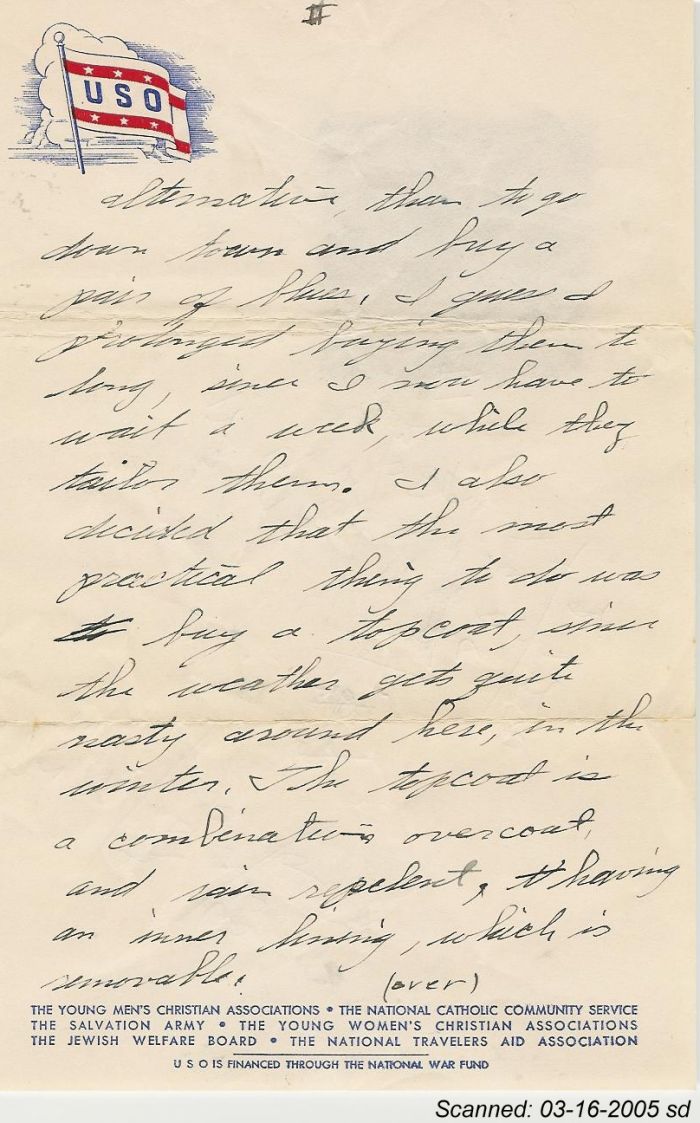 II
USO
alternative, than to go
down town and buy a
pair of blues. I guess I
prolonged buying them to
long, since I now have to
wait a week, while they
tailor them. I also
decided that the most
practical thing to do was
to buy a topcoat, since
the weather gets quite
nasty around here, in the
winter. The topcoat is
a combination overcoat,
and rain repelent, having
an inner lining, which is
removable.
(over)
THE YOUNG MEN'S CHRISTIAN ASSOCIATIONS • THE NATIONAL CATHOLIC COMMUNITY SERVICE
THE SALVATION ARMY • THE YOUNG WOMEN'S CHRISTIAN ASSOCIATIONS
THE JEWISH WELFARE BOARD • THE NATIONAL TRAVELERS AID ASSOCIATION
U S O IS FINANCED THROUGH THE NATIONAL WAR FUND
Scanned: 03-16-2005 sd